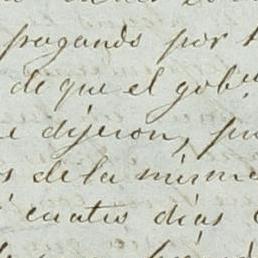 pagando por
de que el gob.º
e dijeron, pu
s de la misma
cuatro días